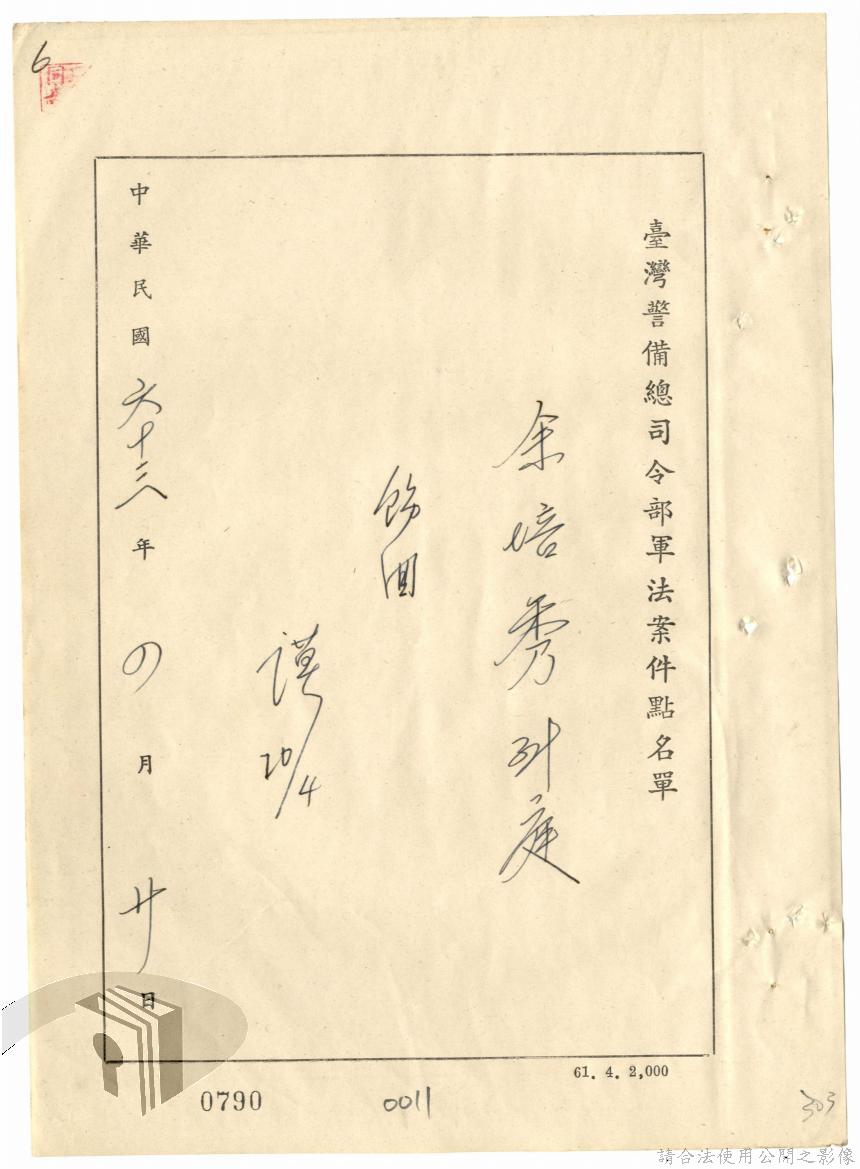 臺灣警備總司令部軍法案件點名單
余培秀到庭
飭回
謹 20/4
中華民國六十三年四月廿日
6
61. 4. 2,000
0790
0011
303
請合法使用公開之影像